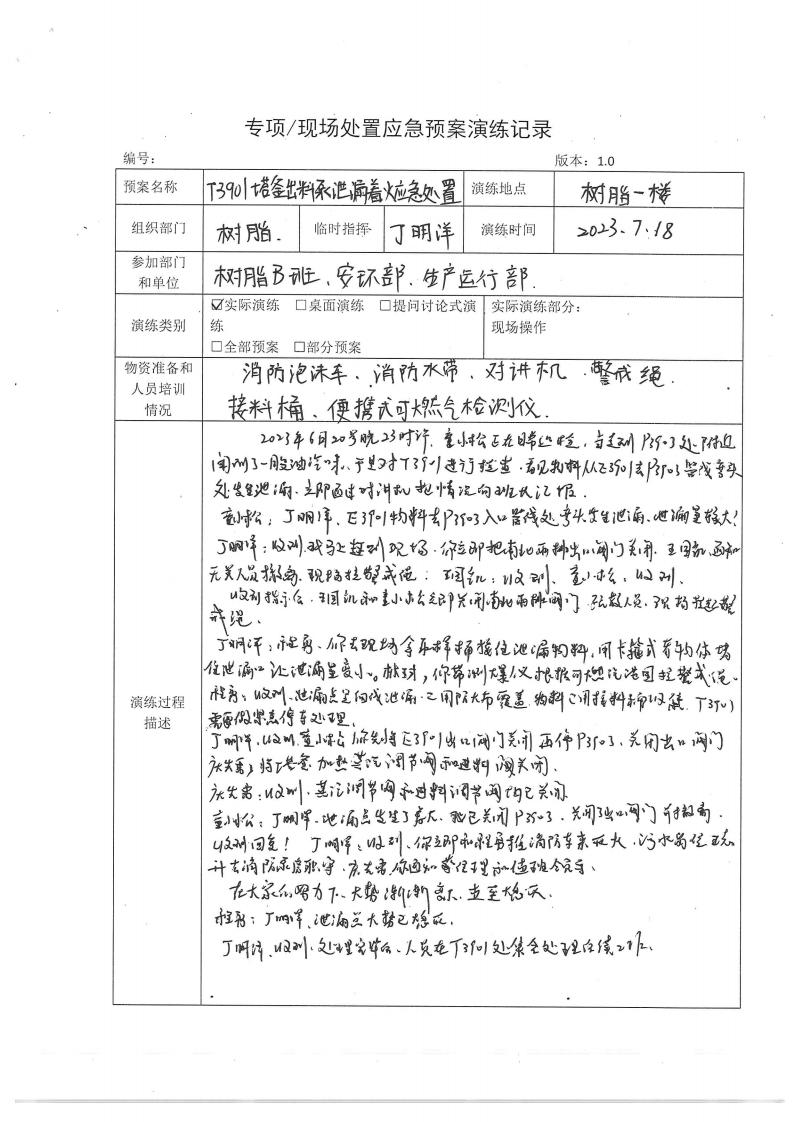 专项/现场处置应急预案演练记录
编号： 版本：1.0
预案名称 T3901塔釜出料泵泄漏着火应急处置 演练地点 树脂一楼
组织部门 树脂. 临时指挥 丁明洋 演练时间 2023.7.18
参加部门和单位 树脂B班、安环部、生产运行部.
演练类别 ☑实际演练 □桌面演练 □提问讨论式演练
□全部预案 □部分预案
实际演练部分：
现场操作
物资准备和人员培训情况 消防泡沫车、消防水带、对讲机、警戒绳.
接料桶、便携式可燃气检测仪.
演练过程描述
2023年6月20号晚23时许，童小松正在巡检，当走到P3903处附近
闻到了一股油汽味，于是对T3901进行检查，看见物料从E3901去P3903管线弯头
处发生泄漏，立即通过对讲机把情况向班长汇报.
童小松：丁明洋、E3901物料去P3903入口管线处弯头发生泄漏、泄漏量较大！
丁明洋：收到.我马上赶到现场，你立即把南北两排出口阀门关闭.王国凯通知
无关人员撤离.现场拉警戒绳：王国凯：收到、童小松、收到.
收到指示后.王国凯和童小松立即关闭南北两排阀门、疏散人员，现场拉起警
戒绳.
丁明洋：程勇、你去现场拿取样桶接住泄漏物料，用卡箍式管构件堵
住泄漏口让泄漏量变小。，你带测爆仪根据可燃汽范围拉警戒绳.
程勇：收到、泄漏点呈线泄漏.已用防火布覆盖.物料已用接料桶收集.T3901
需要做紧急停车处理.
丁明洋.收到.童小松你先将E3901出口阀门关闭再停P3903、关闭出口阀门
将塔釜加热蒸汽调节阀和进料阀关闭.
：收到、蒸汽调节阀和进料调节阀均已关闭
童小松：丁明洋.泄漏点发生了着火.我已关闭P3903、关闭了出口阀门并撤离.
收到回复！ 丁明洋：收到、你立即和程勇推消防车来灭火、污水岗位
去消防泵房职守、你通知管理和值班领导.
在大家的努力下、火势渐渐变小.直至熄灭.
程勇：丁明洋、泄漏点火势已熄灭.
丁明洋、收到.处理完毕后、人员在T3901处集合处理后续工作.